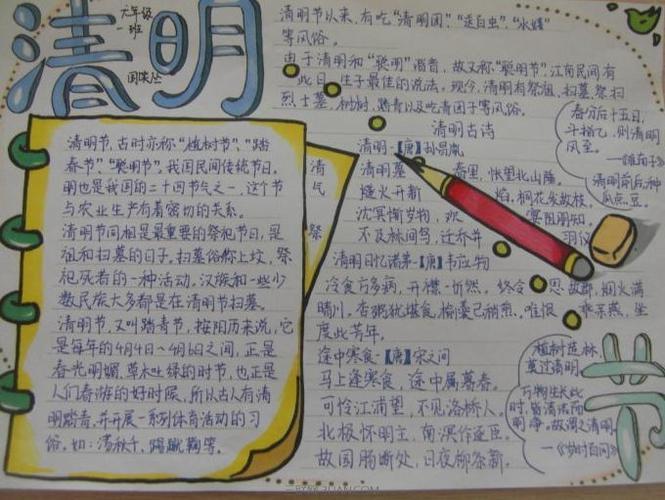 清明
六年级
一班
清明节以来，有吃“清明团”、“送白虫”、“水嬉”
等风俗。
由于清明和“聪明”谐音，故又称“聪明节”。江南民间有
此日生子最佳的说法。现今，清明有祭祖、扫墓、祭扫
烈士墓、植树、踏青以及吃青团子等风俗。
清明节，古时亦称“植树节”、“踏
春节”、“聪明节”，我国民间传统节日。
明也是我国的二十四节气之一，这个节
与农业生产有着密切的关系。
清明节同相是最重要的祭祀节日，是
祖和扫墓的日子。扫墓俗称上坟，祭
祀死者的一种活动。汉族和一些少
数民族大多都是在清明节扫墓。
清明节，又叫踏青节，按阳历来说，它
是每年的4月4日～4月6日之间，正是
春光明媚，草木吐绿的时节，也正是
人们春游的好时候，所以古人有清
明踏青，并开展一系列体育活动的习
俗。如：荡秋千、踢蹴鞠等。
清
气
祭
清明古诗
清明-【唐】孙昌胤
清明暮春里，怅望北山陲。
燧火开新焰，桐花发故枝。
沈冥惭岁物，欢宴阻朋知。
不及林间鸟，迁乔并羽仪
清明日忆诸弟-【唐】韦应物
冷食方多病，开襟一忻然。终令思故郡，烟火满
晴川。杏粥犹堪食，榆羹已稍煎。唯恨乖亲燕，坐
度此芳年。
途中寒食-【唐】宋之问
马上逢寒食，途中属暮春。
可怜江浦望，不见洛桥人。
北极怀明主，南溟作逐臣。
故园肠断处，日夜柳条新。
春分后十五日，
斗指乙，则清明
风至。
清明前后，种
瓜点豆。
植树造林，
莫过清明
万物生长此
时，皆清洁而
明净，故谓之清明。
—《岁时百问》
节